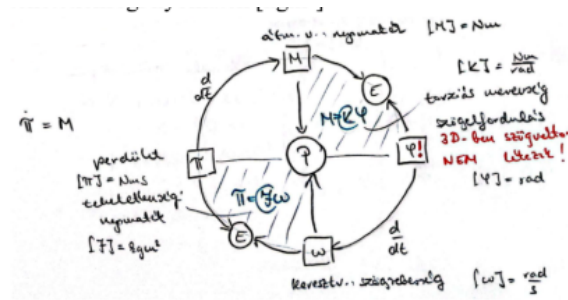 átm. v. nyomaték [M] = Nm
[K] = Nm/rad
torziós merevség
M
E
d/dt
M = Kφ
π̇ = M
szögelfordulás
3D-ben szögvektor
NEM létezik!
[φ] = rad
perdület
[π] = Nms
tehetetlenségi
nyomaték
[J] = kgm²
π
P
φ!
π = Jω
E
ω
d/dt
keresztv. szögsebesség [ω] = rad/s